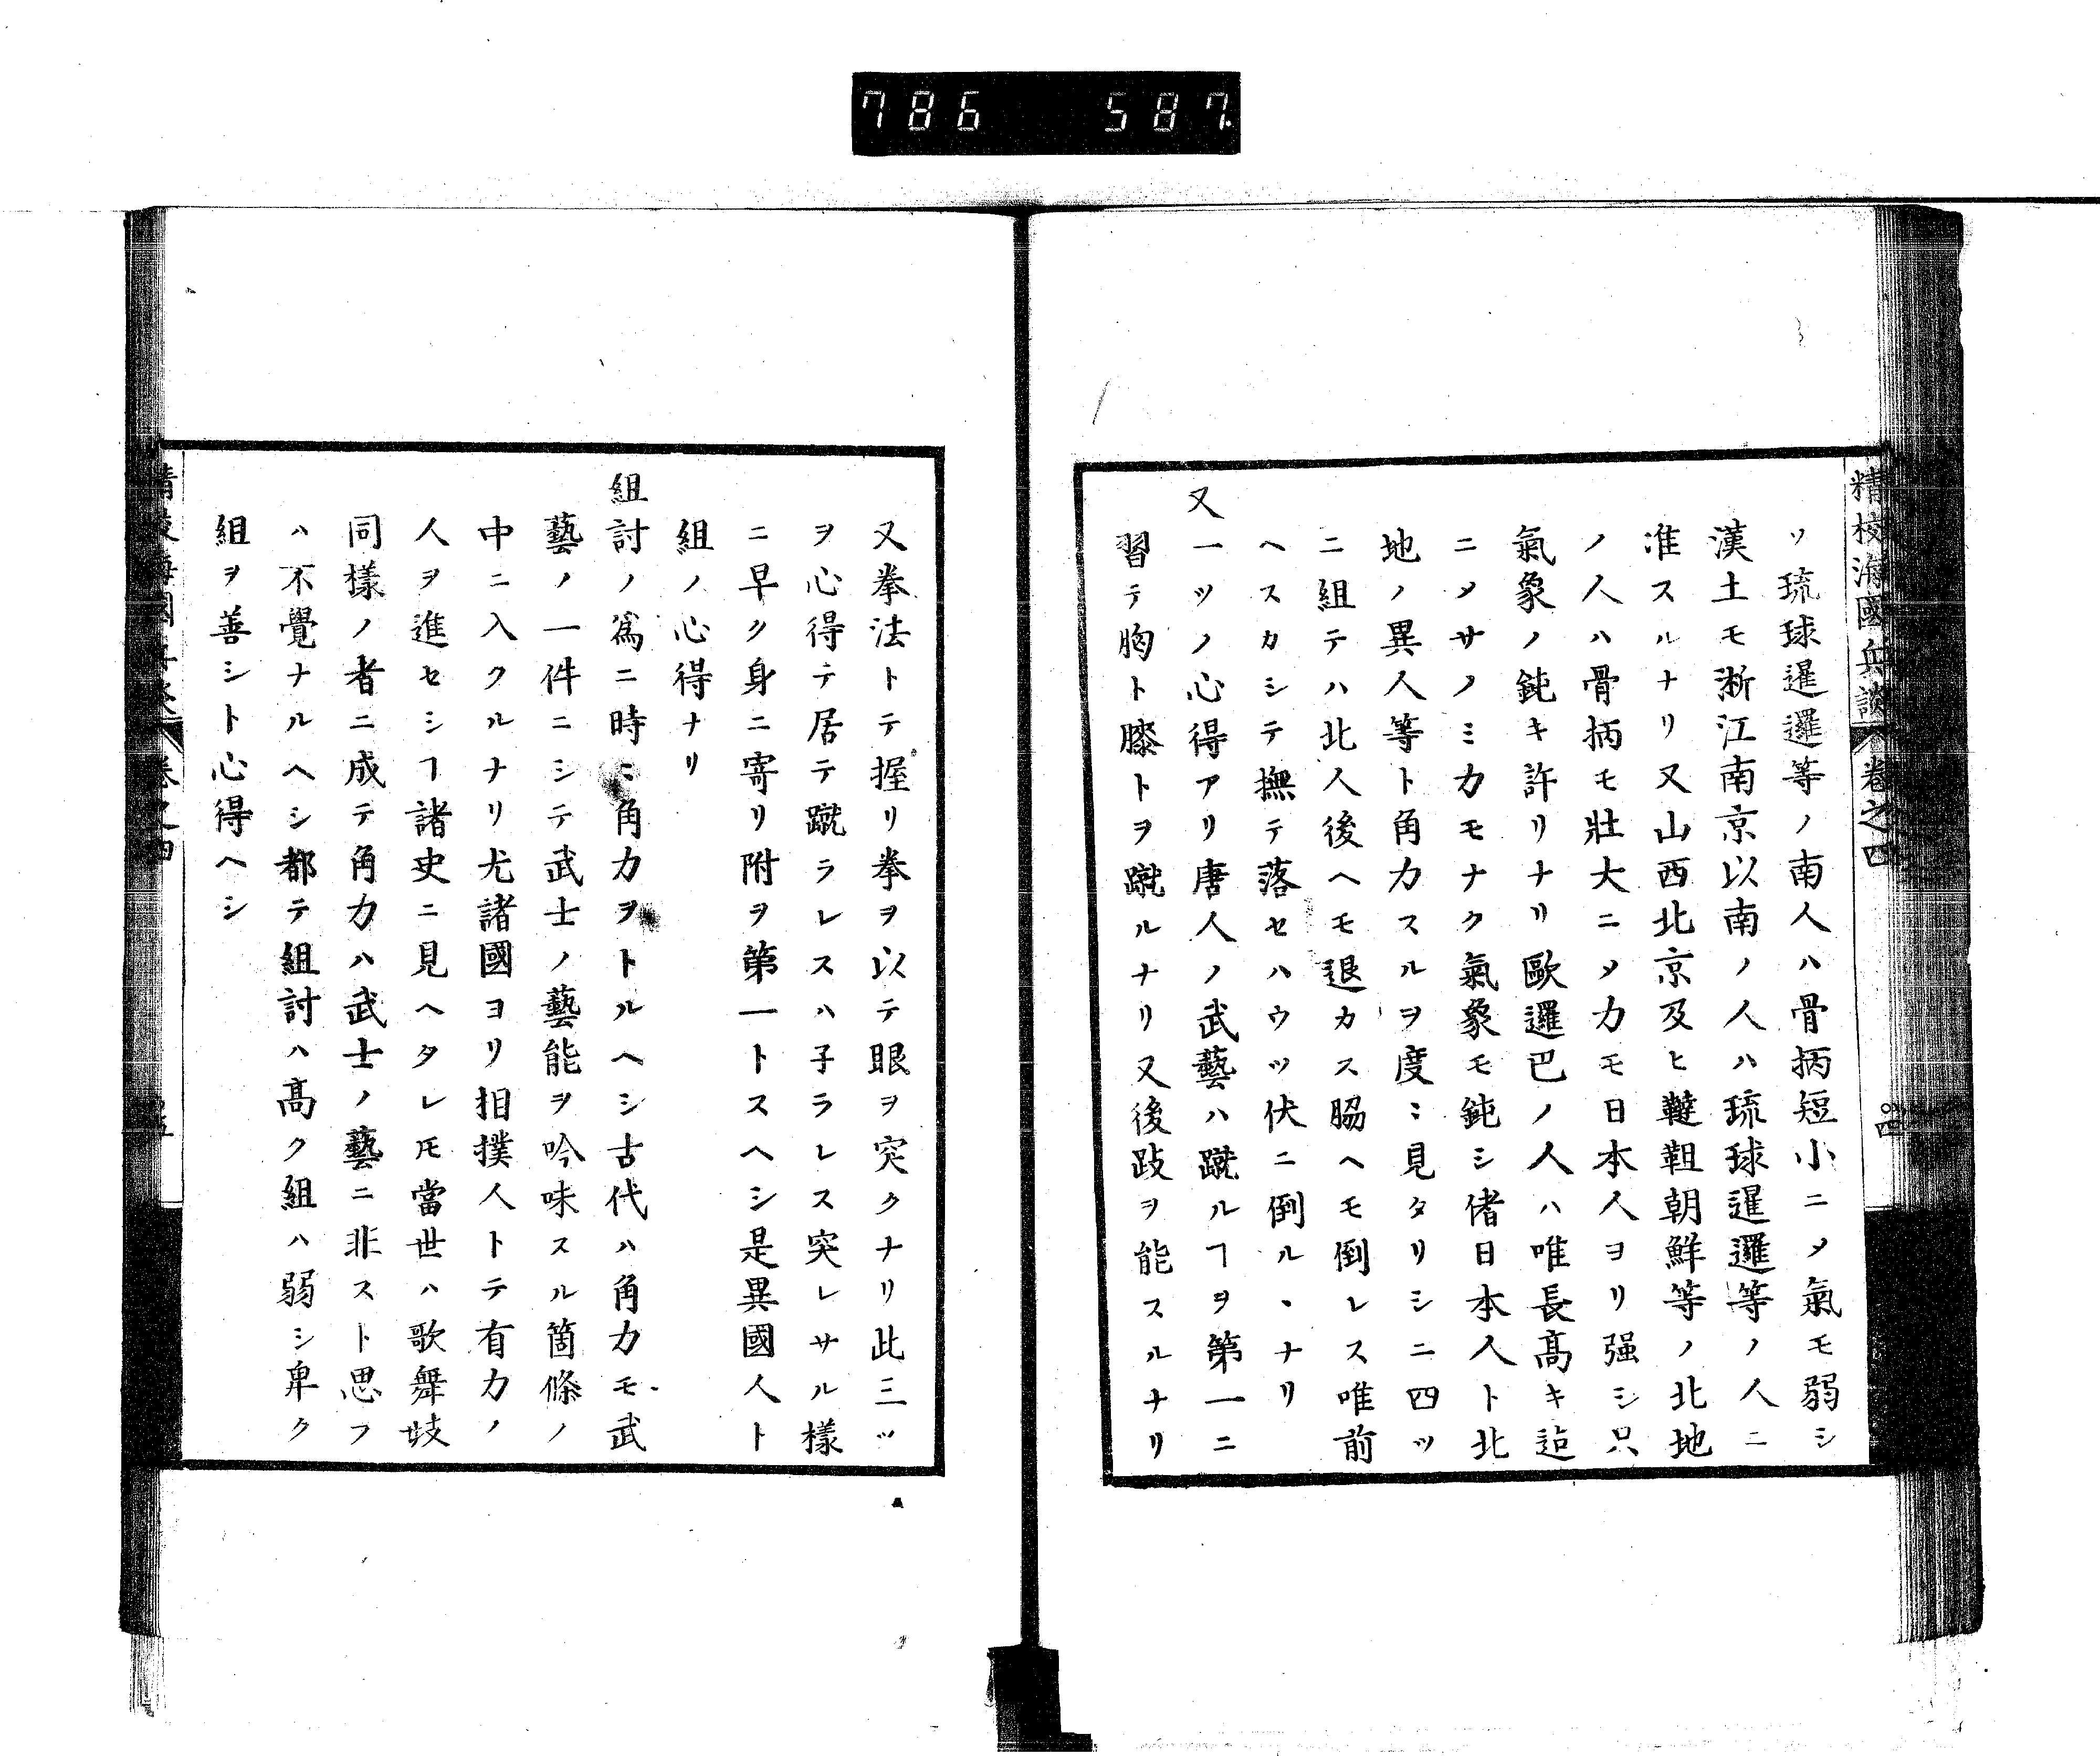 786 587
精校海國兵談 卷之四
四
ソ琉球暹邏等ノ南人ハ骨柄短小ニ〆氣モ弱シ
漢土モ淅江南京以南ノ人ハ琉球暹邏等ノ人ニ
准スルナリ又山西北京及ヒ韃靼朝鮮等ノ北地
ノ人ハ骨柄モ壯大ニ〆力モ日本人ヨリ强シ只
氣象ノ鈍キ許リナリ歐邏巴ノ人ハ唯長高キ迠
ニ〆サノミ力モナク氣象モ鈍シ偖日本人ト北
地ノ異人等ト角力スルヲ度〻見タリシニ四ツ
ニ組テハ北人後ヘモ退カス脇ヘモ倒レス唯前
ヘスカシテ撫テ落セハウツ伏ニ倒ルヽナリ
又一ツノ心得アリ唐人ノ武藝ハ蹴ルヿヲ第一ニ
習テ胸ト膝トヲ蹴ルナリ又後跂ヲ能スルナリ
又拳法トテ握リ拳ヲ以テ眼ヲ突クナリ此三ツ
ヲ心得テ居テ蹴ラレスハ子ラレス突レサル樣
ニ早ク身ニ寄リ附ヲ第一トスヘシ是異國人ト
組ノ心得ナリ
組討ノ爲ニ時〻角力ヲトルヘシ古代ハ角力モ武
藝ノ一件ニシテ武士ノ藝能ヲ吟味スル箇條ノ
中ニ入クルナリ尤諸國ヨリ相撲人トテ有力ノ
人ヲ進セシヿ諸史ニ見ヘタレ𪜈當世ハ歌舞妓
同樣ノ者ニ成テ角力ハ武士ノ藝ニ非スト思フ
ハ不覺ナルヘシ都テ組討ハ高ク組ハ弱シ卑ク
組ヲ善シト心得ヘシ
卷之四